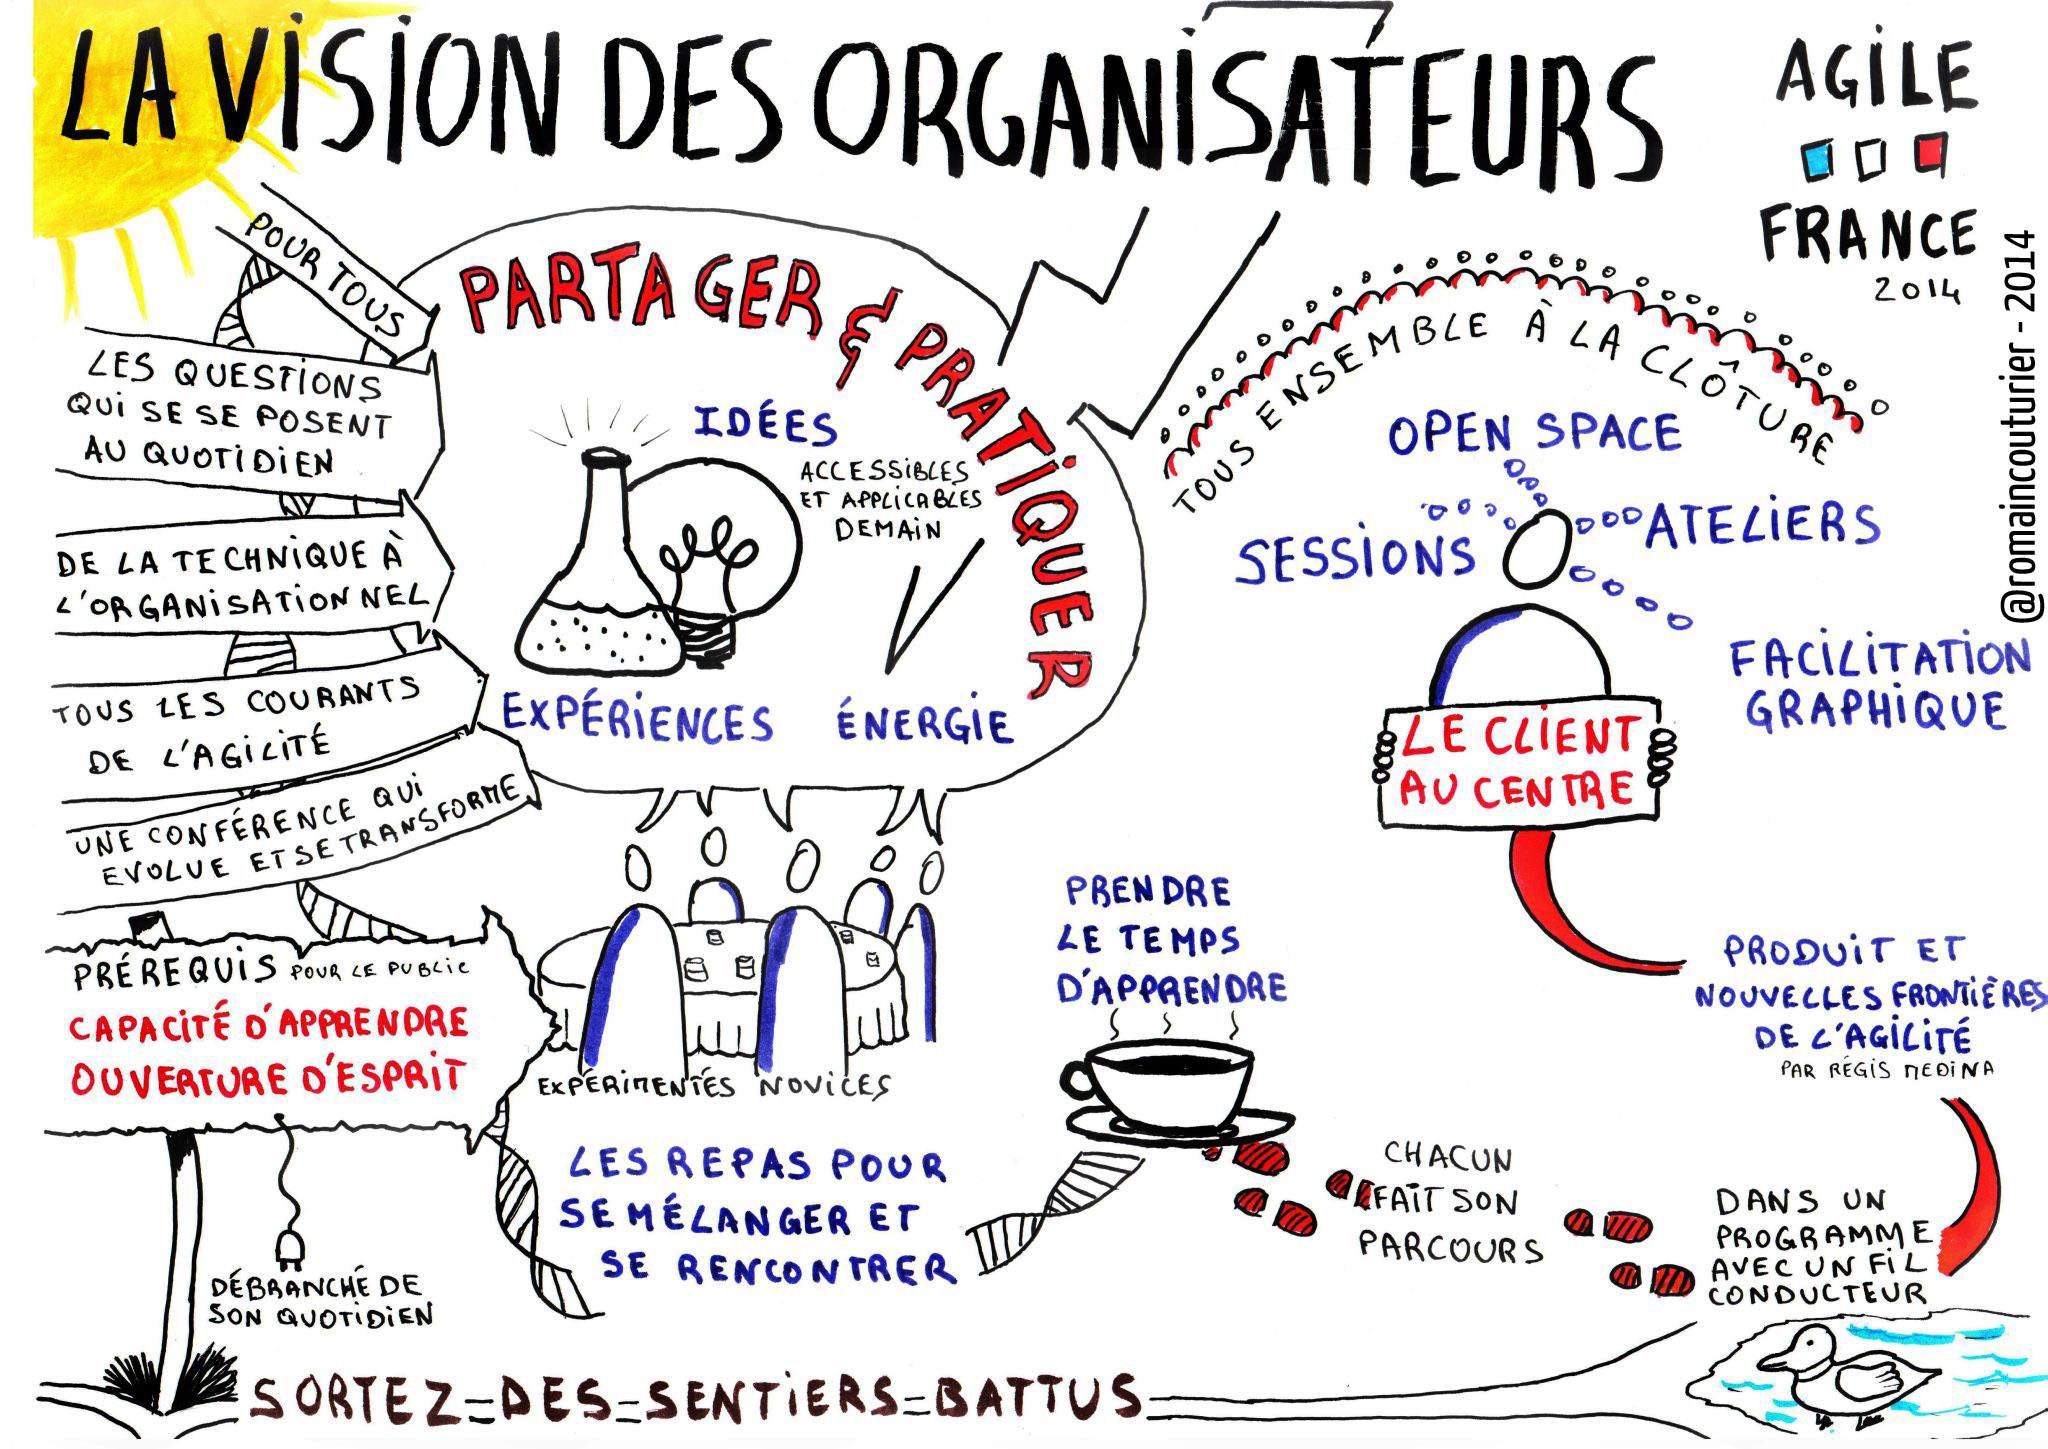 LA VISION DES ORGANISATEURS
AGILE
FRANCE
2014
@romaincouturier - 2014
POUR TOUS
LES QUESTIONS
QUI SE SE POSENT
AU QUOTIDIEN
DE LA TECHNIQUE À
L'ORGANISATIONNEL
TOUS LES COURANTS
DE L'AGILITÉ
UNE CONFÉRENCE QUI
EVOLUE ET SE TRANSFORME
PRÉREQUIS POUR LE PUBLIC
CAPACITÉ D'APPRENDRE
OUVERTURE D'ESPRIT
DÉBRANCHÉ DE
SON QUOTIDIEN
PARTAGER & PRATIQUER
IDÉES
ACCESSIBLES
ET APPLICABLES
DEMAIN
EXPÉRIENCES
ÉNERGIE
EXPÉRIMENTÉS NOVICES
LES REPAS POUR
SE MÉLANGER ET
SE RENCONTRER
TOUS ENSEMBLE À LA CLÔTURE
OPEN SPACE
SESSIONS
ATELIERS
FACILITATION
GRAPHIQUE
LE CLIENT
AU CENTRE
PRENDRE
LE TEMPS
D'APPRENDRE
PRODUIT ET
NOUVELLES FRONTIÈRES
DE L'AGILITÉ
PAR RÉGIS MEDINA
CHACUN
FAIT SON
PARCOURS
DANS UN
PROGRAMME
AVEC UN FIL
CONDUCTEUR
SORTEZ=DES=SENTIERS=BATTUS